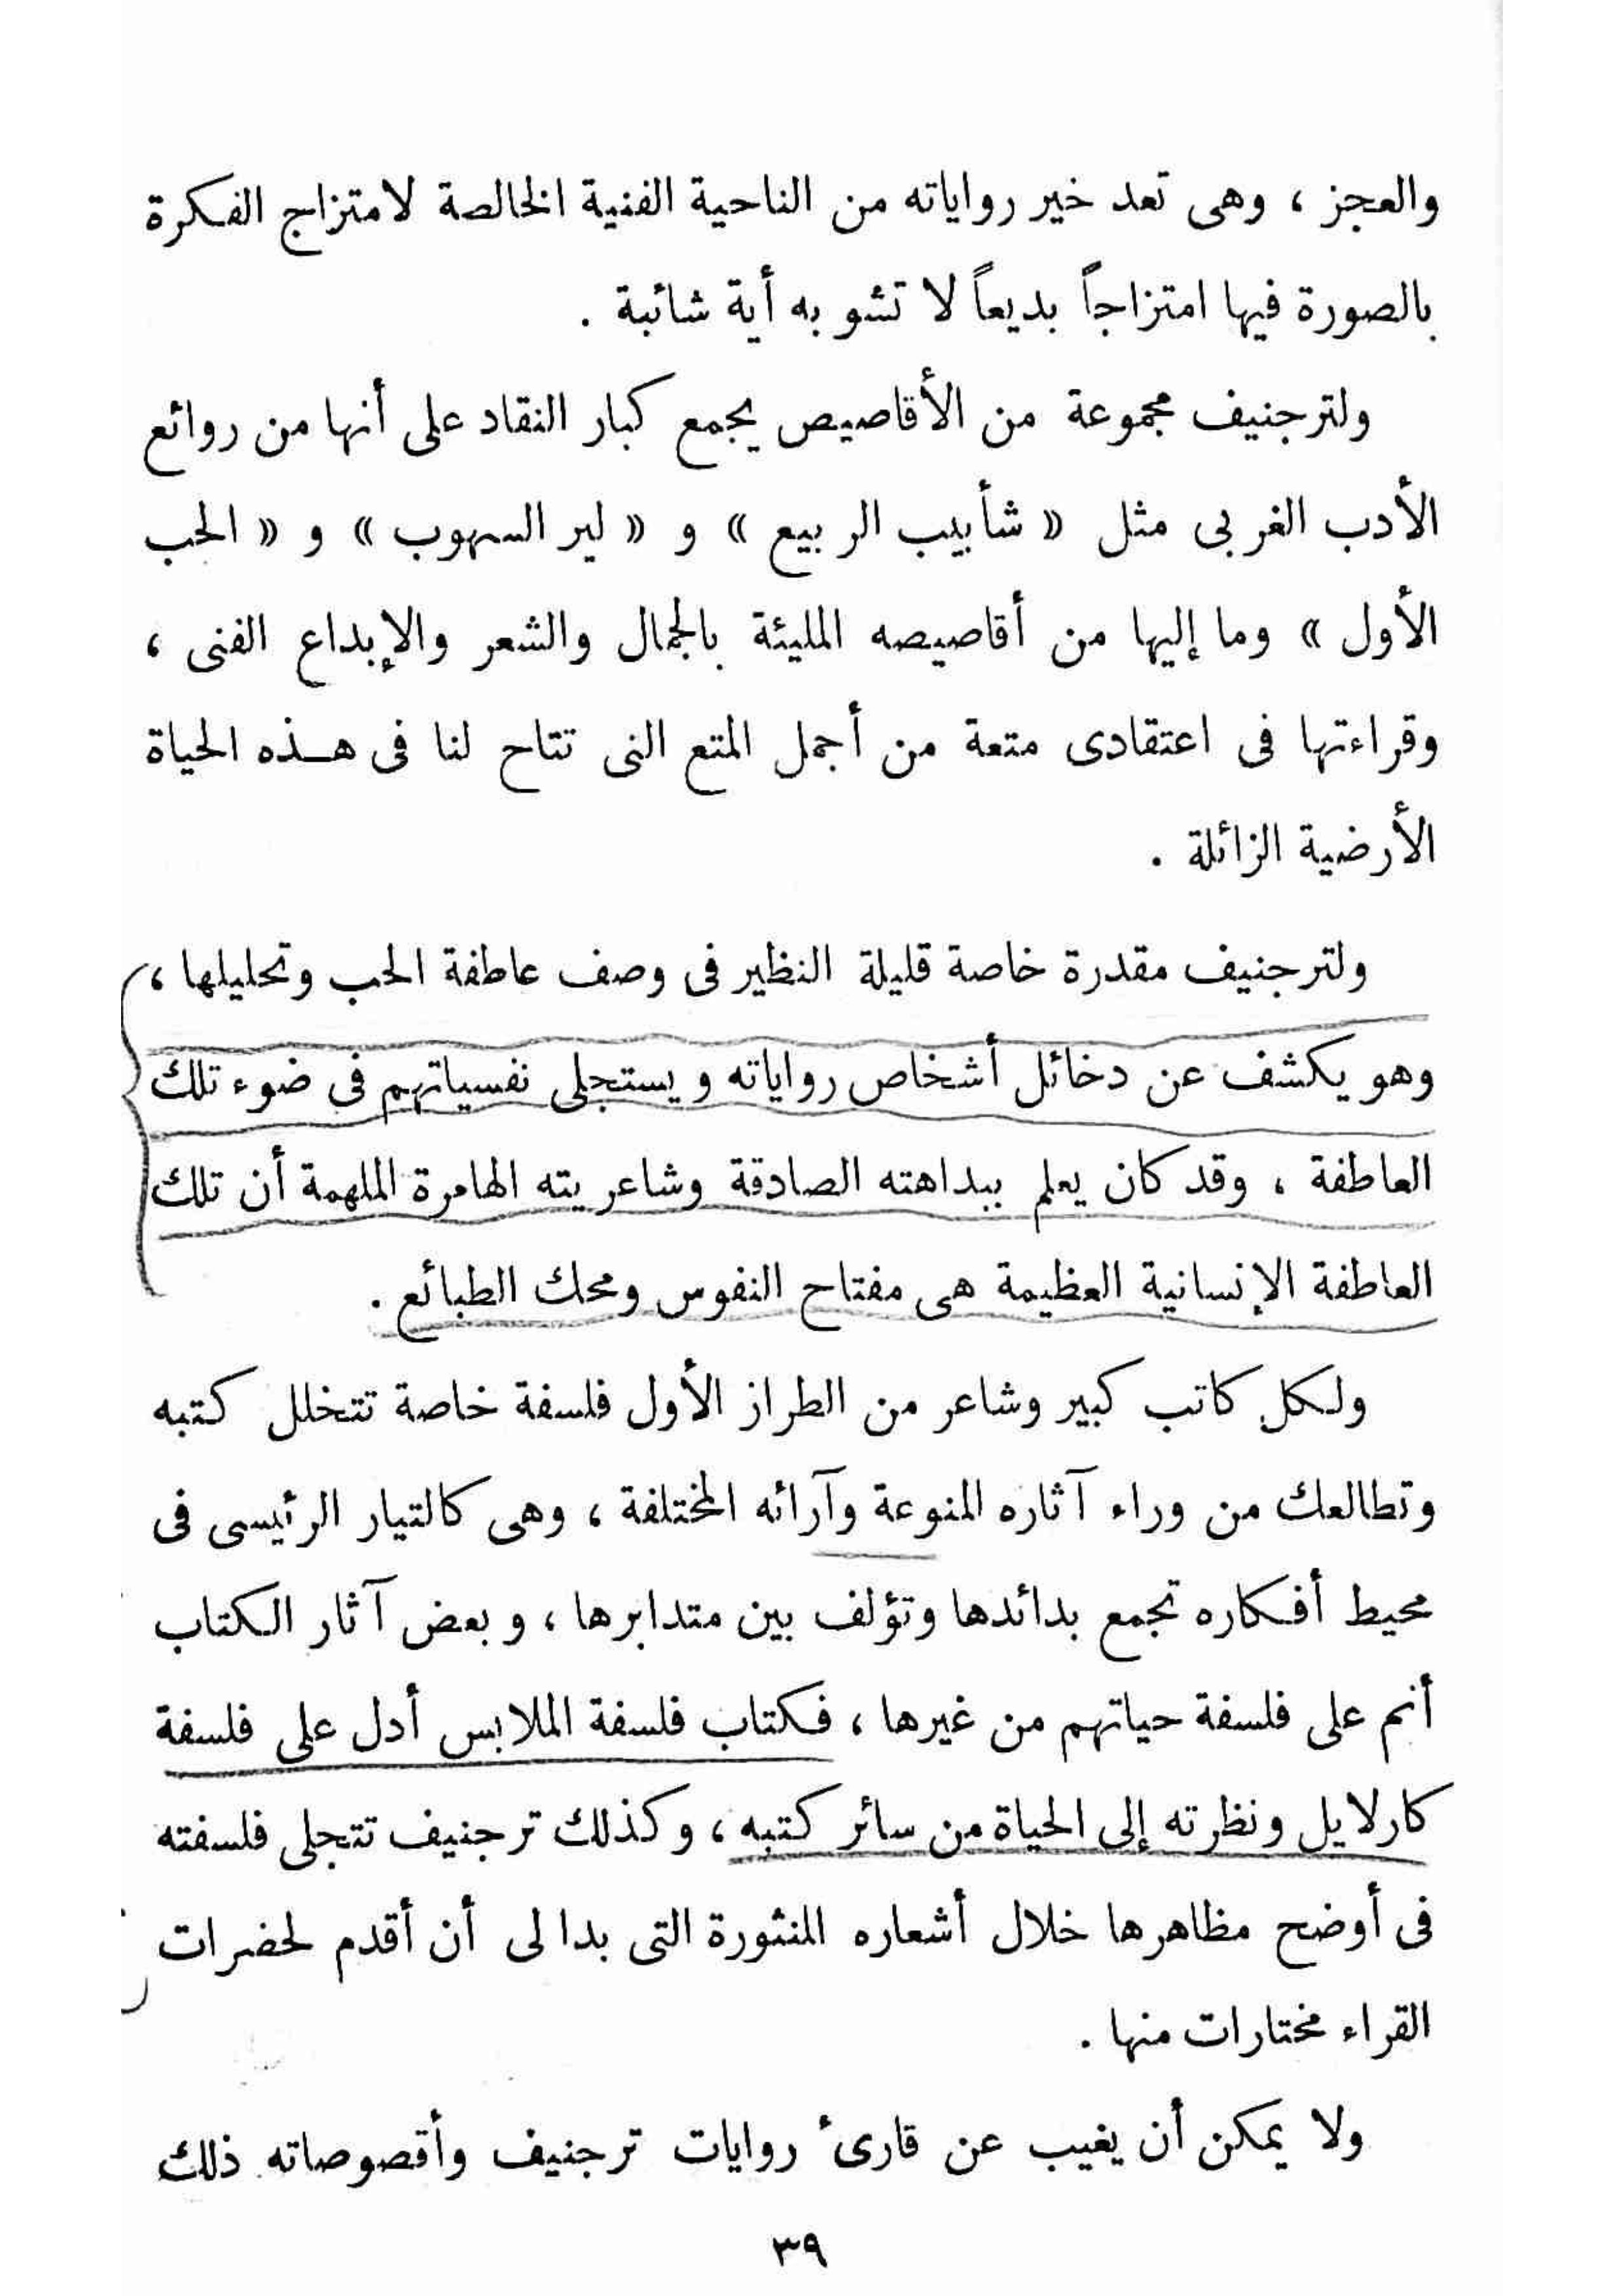 والعجز ، وهى تعد خير رواياته من الناحية الفنية الخالصة لامتزاج الفكرة
بالصورة فيها امتزاجاً بديعاً لا تشوبه أية شائبة .
ولترجنيف مجموعة من الأقاصيص يجمع كبار النقاد على أنها من روائع
الأدب الغربى مثل « شأبيب الربيع » و « لير السهوب » و « الحب
الأول » وما إليها من أقاصيصه المليئة بالجمال والشعر والإبداع الفنى ،
وقراءتها فى اعتقادى متعة من أجمل المتع التى تتاح لنا فى هذه الحياة
الأرضية الزائلة .
ولترجنيف مقدرة خاصة قليلة النظير فى وصف عاطفة الحب وتحليلها ،
وهو يكشف عن دخائل أشخاص رواياته ويستجلى نفسياتهم فى ضوء تلك
العاطفة ، وقد كان يعلم ببداهته الصادقة وشاعريته الهامرة الملهمة أن تلك
العاطفة الإنسانية العظيمة هى مفتاح النفوس ومحك الطبائع .
ولكل كاتب كبير وشاعر من الطراز الأول فلسفة خاصة تتخلل كتبه
وتطالعك من وراء آثاره المنوعة وآرائه المختلفة ، وهى كالتيار الرئيسى فى
محيط أفكاره تجمع بدائدها وتؤلف بين متدابرها ، وبعض آثار الكتاب
أنم على فلسفة حياتهم من غيرها ، فكتاب فلسفة الملابس أدل على فلسفة
كارلايل ونظرته إلى الحياة من سائر كتبه ، وكذلك ترجنيف تتجلى فلسفته
فى أوضح مظاهرها خلال أشعاره المنثورة التى بدا لى أن أقدم لحضرات
القراء مختارات منها .
ولا يمكن أن يغيب عن قارىء روايات ترجنيف وأقصوصاته ذلك
٣٩